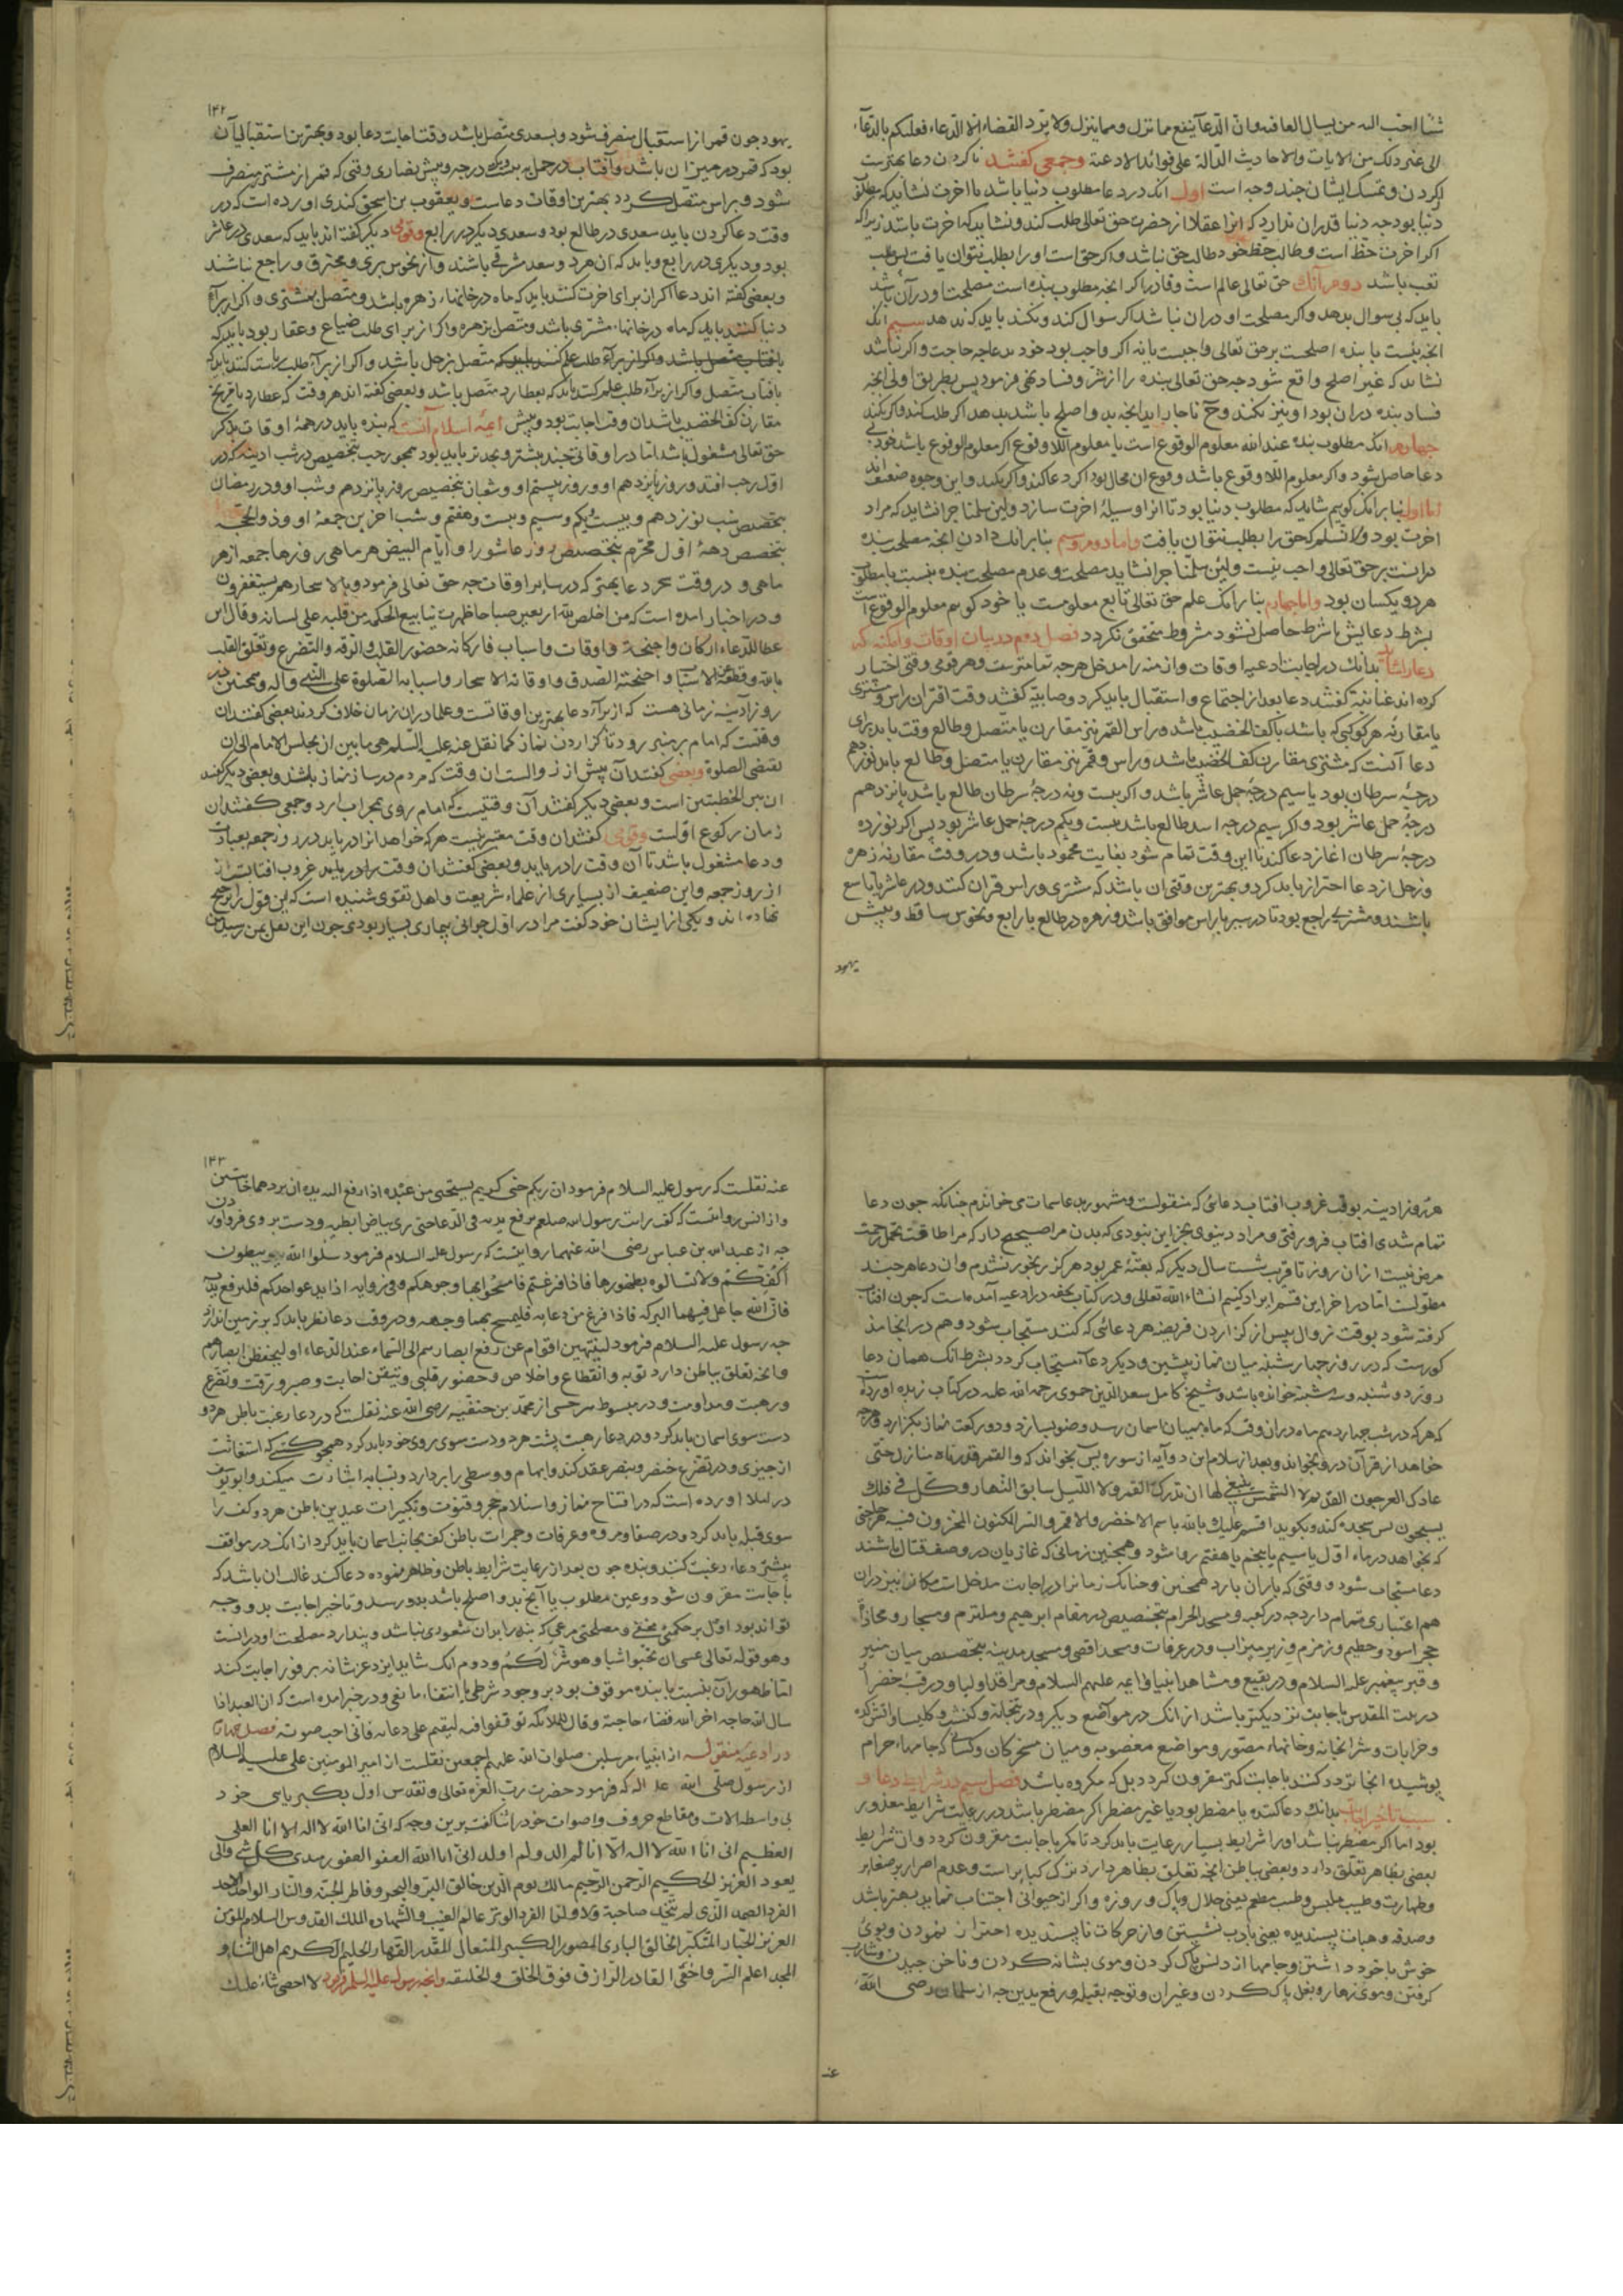 شیئا احب الیه من یسال العافیه وان الدعا ینفع مما نزل ومما ینزل ولا یرد القضاء الا الدعاء فعلیکم بالدعاء
الی غیر ذلک من الایات والاحادیث الدالة علی فوائد الادعیة وجمعی کفتند ناکردن دعا بهترست
ازکردن و تمسک ایشان جند وجه است اول انک در دعا مطلوب دنیا باشد یا اخرت نشاید که مطلوب
دنیا بود جه دنیا قدر ان ندارد که انرا عقلا از حضرت حق تعالی طلب کنند و نشاید که اخرت باشد زیراکه
اکر اخرت حظ است وطالب حظ خود طالب حق نباشد و اکر حق است او را بطلب نتوان یافت پس طلب
تعب باشد دوم آنک حق تعالی عالم است وقادر اکر انجه مطلوب بنده است مصلحت او در آن باشد
باید که بی سوال بدهد واکر مصلحت او دران نباشد اکر سوال کند و نکند باید که ندهد سیم انک
انجه نسبت با بنده اصلحست بر حق تعالی واجبست یا نه اکر واجب بود خود بدعا جه حاجت واکر نباشد
نشاید که غیر اصلح واقع شود جه حق تعالی بنده را از شر و فساد نهی فرمود پس بطریق اولی انجه
فساد بنده دران بود او نیز نکند وح ناجار باید انجه بد واصلح باشد بدهد اکر طلب کند واکر نکند
جهارم انک مطلوب بنده عند الله معلوم الوقوع است یا معلوم اللاوقوع اکر معلوم الوقوع باشد خود بی
دعا حاصل شود واکر معلوم اللاوقوع باشد وقوع ان محال بود اکر دعا کند واکر نکند و این وجوه ضعیف اند
اما اول بنابر انک کوییم شاید که مطلوب دنیا بود تا انرا وسیلهٔ اخرت سازد ولئن سلمنا جرا نشاید که مراد
اخرت بود ولا نسلم که حق را بطلب نتوان یافت واما دوم وسیم بنابر انک دادن انجه مصلحت بنده
درانست بر حق تعالی واجب نیست ولئن سلمنا جرا نشاید مصلحت وعدم مصلحت بنده نسبت با مطلوب
هر دو یکسان بود واما جهارم بنابر انک علم حق تعالی تابع معلومست یا خود کوییم معلوم الوقوع است
بشرط دعا لیکن با شرط حاصل نشود مشروط متحقق نکردد فصل دوم در بیان اوقات وامکنه که
دعا را شاید بدانک در اجابت ادعیه اوقات وازمنه را مدخل هرجه تمامترست وهر قومی وقتی اختیار
کرده اند کفتند دعا بعد از اجتماع و استقبال باید کرد وصابیه کفتند وقت اقتران راس و مشتری
یا مقارنه هر کوکبی که باشد با کف الخضیب باشد وراس القمر نیز مقارن یا متصل وطالع وقت باید برای
دعا آنست که مشتری مقارن کف الخضیب باشد وراس وقمر نیز مقارن یا متصل وطالع باید نوزدهم
درجهٔ سرطان بود یا سیم درجهٔ حمل عاشر باشد و اکر بیست ونه درجهٔ سرطان طالع باشد پانزدهم
درجهٔ حمل عاشر بود و اکر سیم درجه اسد طالع باشد بیست ویکم درجهٔ حمل عاشر بود پس اکر نوزده
درجهٔ سرطان اغاز دعا کند تا این وقت تمام شود بغایت محمود باشد ودر وقت مقارنه زهره
وزحل از دعا احتراز باید کرد و بهترین وقتی ان باشد که مشتری وراس قران کنند ودر عاشر یا تاسع
باشند ومشتری راجع بود تا در سیر با راس موافق باشد وزهره در طالع یا رابع ونحوس ساقط وپیش
یهود
۱۴۲
یهود جون قمر از استقبال منصرف شود و بسعدی متصل باشد وقت اجابت دعا بود و بهترین استقبالی آن
بود که قمر در میزان باشد وآفتاب در حمل در درجه وپیش نصاری وقتی که قمر از مشتری منصرف
شود و براس متصل کردد بهترین اوقات دعاست و یعقوب بن اسحق کندی اورده است که در
وقت دعا کردن باید سعدی در طالع بود و سعدی دیکر در رابع وقومی دیکر کفته اند باید که سعدی در عاشر
بود و دیکری در رابع و باید که ان هر دو سعد مشرقی باشند واز نحوس بری و محترق و راجع نباشند
و بعضی کفته اند دعا اکر از برای اخرت کنند باید که ماه در خانهاء زهره باشد و متصل بمشتری و اکر از برای
دنیا کنند باید که ماه در خانهاء مشتری باشد و متصل بزهره و اکر از برای طلب ضیاع و عقار بود باید که
بافتاب متصل باشد و اکر از براء طلب علم کنند باید که متصل بزحل باشد و اکر از براء طلب ریاست کنند باید که
بافتاب متصل و اکر از براء طلب علم کنند باید که بعطارد متصل باشد و بعضی کفته اند هر وقت که عطارد یا مریخ
مقارن کف الخضیب باشد ان وقت اجابت بود و پیش ایمهٔ اسلام آنست که بنده باید در همهٔ اوقات بذکر
حق تعالی مشغول باشد اما در اوقاتی جند بیشتر و بجدتر باید بود همجو رجب بتخصیص در شب ادینه که در
اول رجب افتد و روز پانزدهم او و روز بیستم او وشعبان بتخصیص روز پانزدهم و شب او ودر رمضان
بتخصیص شب نوزدهم و بیست ویکم وسیم وبیست وهفتم و شب اخرین جمعهٔ او وذو الحجه
بتخصیص دههٔ اول محرم بتخصیص روز عاشورا و ایام البیض هر ماهی و روزهاء جمعه از هر
ماهی و در وقت سحر دعا بهتر که در سایر اوقات جه حق تعالی فرمود وبالاسحار هم یستغفرون
و در اخبار امده است که من اخلص لله اربعین صباحا ظهرت ینابیع الحکمه من قلبه علی لسانه وقال ابن
عطا للدعاء ارکان واجنحة واوقات واسباب فارکانه حضور القلب والرقه والتضرع وتعلق القلب
بالله وقطعه عن الاسباب واجنحته الصدق واوقاته الاسحار واسبابه الصلوة علی النبی واله وهمجنین در
روز آدینه زمانی هست که از براء دعا بهترین اوقاتست وعلما در ان زمان خلاف کرده اند بعضی کفتند ان
وقتست که امام بر منبر رود تا کزاردن نماز کما نقل عنه علیه السلم هی ما بین ان یجلس الامام الی ان
یقضی الصلوة وبعضی کفتند آن پیش از زوالست ان وقت که مردم در ساز نماز باشند وبعضی دیکر کفتند
ان بین الخطبتین است و بعضی دیکر کفتند آن وقتیست که امام روی بمحراب ارد و جمعی کفتند ان
زمان رکوع اولست وقومی کفتند ان وقت معین نیست هر که خواهد انرا دریابد در روز جمعه بعبادت
ودعا مشغول باشد تا آن وقت را دریابد و بعضی کفتند ان وقت را دریابند غروب افتابست
از روز جمعه واین ضعیف از بسیاری از علماء شریعت واهل تقوی شنیده است که این قول را ترجیح
نهاده اند و یکی از ایشان خود کفت مرا در اول جوانی بیماری بسیار بودی جون این نقل بمن رسید من
هر روز ادینه بوقت غروب افتاب دعائی که منقولست و مشهور بدعا سمات می خواندم جنانکه جون دعا
تمام شدی افتاب فرو رفتی و مراد دینوی بجز این نبودی که بدن مرا صحیح دار که مرا طاقت تحمل زحمت
مرض نیست از ان روز تا قریب شست سال دیکر که بقیهٔ عمر بود هرکز رنجور نشدم وان دعا هر جند
مطولست اما در اخر این قسم ایراد کنیم انشاء الله تعالی ودر کتاب تحفه در ادعیه آمده است که جون افتاب
کرفته شود بوقت زوال پس از کزاردن فریضه هر دعائی که کنند مستجاب شود وهم در انجا مذ
کورست که در روز جهارشنبه میان نماز پیشین ودیکر دعا مستجاب کردد بشرط انک همان دعا
روز دوشنبه وسه شنبه خوانده باشد وشیخ کامل سعد الدین حموی رحمه الله علیه در کتاب زبده اورده است
که هر که در شب جهاردهم ماه دران وقت که ماه بمیان اسمان رسد وضو بسازد ودو رکعت نماز بکزارد و هرجه
خواهد از قرآن درو بخواند وبعد از سلام این دو آیه از سوره یس بخواند که والقمر قدرناه منازل حتی
عاد کالعرجون القدیم لا الشمس ینبغی لها ان تدرک القمر ولا اللیل سابق النهار وکل فی فلک
یسبحون پس سجده کند وبکوید اقسم علیک بالله باسم الاخضر والاقمر والسر المکنون المخزون فیه هر حاجتی
که بخواهد در ماه اول یا سیم یا پنجم یا هفتم روا شود وهمجنین زمانی که غازیان در وصف قتال باشند
دعا مستجاب شود و وقتی که باران بارد همجنین وجنانک زمانرا در اجابت مدخل است مکانرا نیز دران
هم اعتباری تمام دارد جه در کعبه ومسجد الحرام بتخصیص در مقام ابرهیم وملتزم ومستجار ومحاذاة
حجر اسود وحطیم وزمزم وزیر میزاب ودر عرفات ومسجد اقصی ومسجد مدینه بتخصیص میان منبر
وقبر پیغمبر علیه السلام ودر بقیع ومشاهد انبیا وایمه علیهم السلام ومراقد اولیا ودر قبهٔ خضرا
در بیت المقدس باجابت نزدیکتر باشد از انک در مواضع دیکر ودر بتخانه وکنشت وکلیسا واتش کده
وخرابات وشرابخانه وخانهاء مصور ومواضع مغصوبه ومیان مسخرکان وکسانی که جامهاء حرام
پوشیده انجا تردد کنند باجابت کمتر مقرون کردد بل که مکروه باشد فصل سیم در شرایط دعا و
سبب تاخیر اجابت بدانک دعا کننده یا مضطر بود یا غیر مضطر اکر مضطر باشد در رعایت شرایط معذور
بود اما اکر مضطر نباشد او را شرایط بسیار رعایت باید کرد تا مکر باجابت مقرون کردد وان شرایط
بعضی بظاهر تعلق دارد وبعضی بباطن انجه تعلق بظاهر دارد ترک کبایر است وعدم اصرار بر صغایر
وطهارت وطیب ملبس وطیب مطعم یعنی حلال وپاک وروزه واکر از حیوانی اجتناب نماید بهتر باشد
وصدقه وهیات پسندیده یعنی بادب نشستن واز حرکات ناپسندیده احتراز نمودن وبوی
خوش باخود داشتن وجامها از دنس پاک کردن وموی بشانه کردن وناخن جیدن وشارب
کرفتن وموی زهار وبغل پاک کردن وغیر ان وتوجه بقبله ورفع یدین جه از سلمان رضی الله
عنه
۱۴۳
عنه نقلست که رسول علیه السلام فرمود ان ربکم حیی کریم یستحیی من عبده اذا رفع الیه یدیه ان یردهما خائبتین
واز انس روایتست که کفت رایت رسول الله صلعم یرفع یدیه فی الدعا حتی یری بیاض ابطیه ودست بر وی فرواوردن
جه از عبد الله بن عباس رضی الله عنهما روایتست که رسول علیه السلام فرمود سلوا الله ببطون
اکفکم ولا تسالوه بظهورها فاذا فرغتم فامسحوا بها وجوهکم وفی روایه اذا یدعو احدکم فلیرفع یدیه
فان الله جاعل فیهما البرکه فاذا فرغ من دعایه فلیمسح بهما وجهه ودر وقت دعا نظر باید که بر زمین اندازد
جه رسول علیه السلام فرمود لینتهین اقوام عن رفع ابصارهم الی السماء عند الدعاء او لیخطفن ابصارهم
وانجه تعلق بباطن دارد توبه وانقطاع واخلاص وحضور قلبی وتیقن اجابت وصبر ورقت وتضرع
ورهبت ومداومت ودر مبسوط سرخسی از محمد بن حنفیه رضی الله عنه نقلست که در دعا رغبت باطن هر دو
دست سوی اسمان باید کرد ودر دعا رهبت پشت هر دو دست سوی روی خود باید کرد همجو کسی که استغاثت
از جیزی ودر تضرع خنصر وبنصر عقد کند وابهام ووسطی را بر دارد وبسبابه اشارت میکند وابو یوسف
در املا اورده است که در افتتاح نماز واستلام حجر وقنوت وتکبیرات عیدین باطن هر دو کف را
سوی قبله باید کرد ودر صفا ومروه وعرفات وجمرات باطن کف بجانب اسمان باید کرد از انک در مواقف
بیشتر دعاء رغبت کنند وبنده جون بعد از رعایت شرایط باطن وظاهر نموده دعا کند غالب ان باشد که
باجابت مقرون شود وعین مطلوب یا آنج بدو اصلح باشد بدو رسد وتاخیر اجابت بدو وجه
تواند بود اول بر حکمتی مخفی ومصلحتی مرعی که بنده را بران شعوری نباشد وپندارد مصلحت او درانست
وهو قوله تعالی عسی ان تحبوا شیا وهو شر لکم ودوم انک شاید ایزد عز شانه بر فور اجابت کند
اما ظهور آن بنسبت با بنده موقوف بود بر وجود شرطی یا انتفاء مانعی ودر خبر امده است که ان العبد اذا
سال الله حاجه اخر الله قضاء حاجته وقال للملائکه توقفوا فیه لیقیم علی دعایه فانی احب صوته فصل جهارم
در ادعیه منقوله از انبیاء مرسلین صلوات الله علیهم اجمعین نقلست از امیر المومنین علی علیه السلام
از رسول صلی الله علیه اله که فرمود حضرت رب العزه تعالی وتقدس اول بکبریای خود
بی واسطه الات ومقاطع حروف واصوات خود را ثنا کفت برین وجه که انی انا الله لا اله الا انا العلی
العظیم انی انا الله لا اله الا انا لم الد ولم اولد انی انا الله العفو الغفور مبدی کل شی والی
یعود العزیز الحکیم الرحمن الرحیم مالک یوم الدین خالق البر والبحر وفاطر الجنه والنار الواحد الاحد
الفرد الصمد الذی لم یتخذ صاحبة ولا ولدا الفرد الوتر عالم الغیب والشهاده الملک القدوس السلام المومن
العزیز الجبار المتکبر الخالق البارئ المصور الکبیر المتعالی المقتدر القهار الحلیم الکریم اهل الثنا و
المجد اعلم السر واخفی القادر الرازق فوق الخلق والخلیقه وانجه رسول علیه السلم فرمود لا احصی ثناء علیک